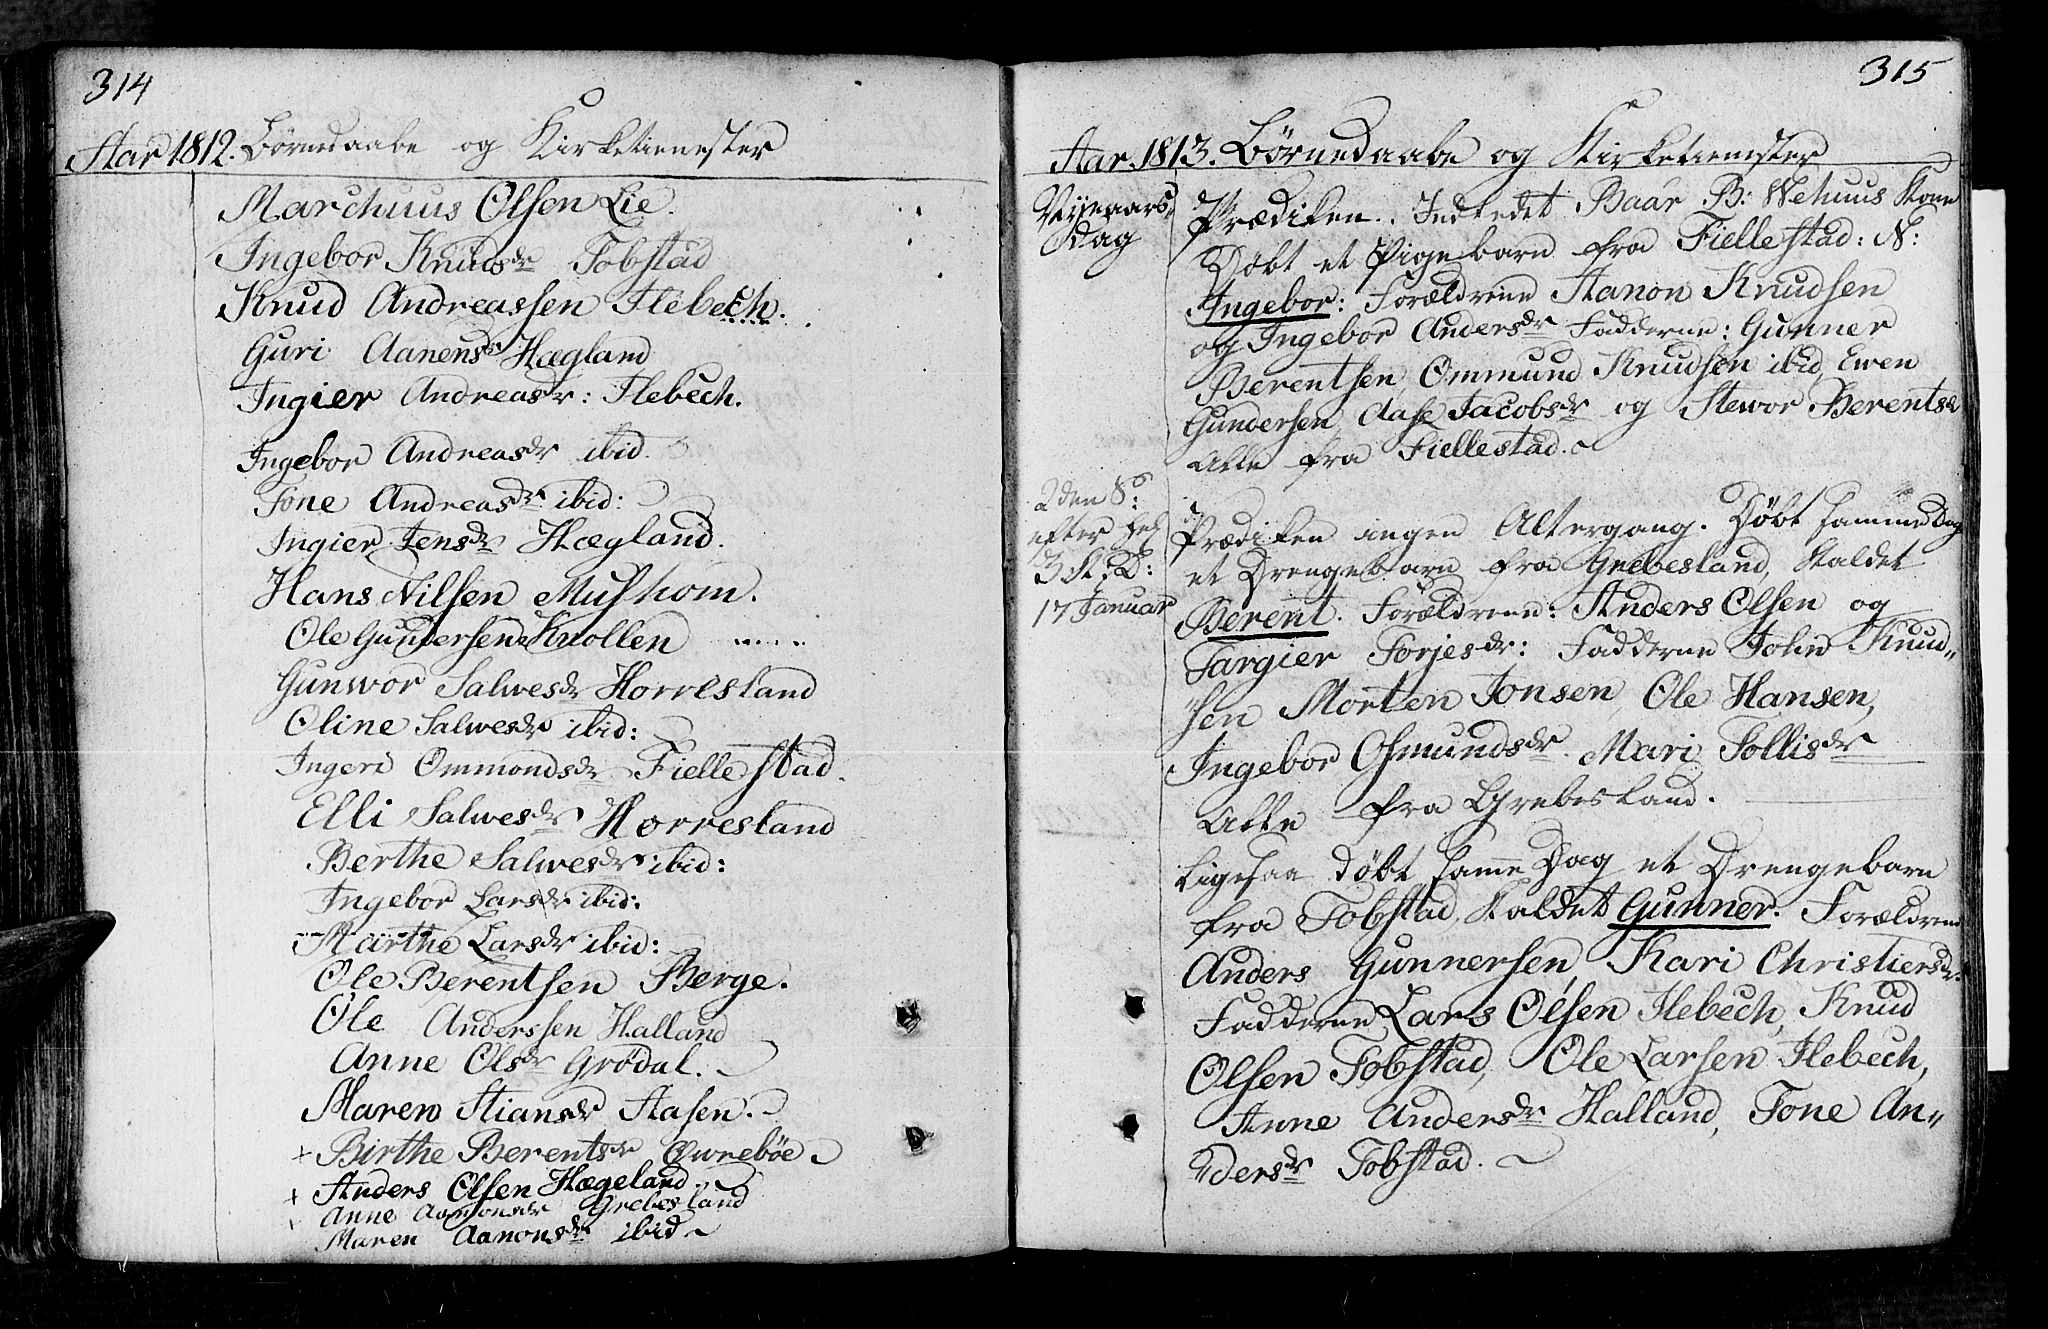 314
Aar 1812. Børnedaabe og Kirketienester
Marchuus Olsen Lie.
Ingebor Knudsdr Tobstad
Knud Andreassen Flebech.
Guri Aanensdr Hægland
Ingier Andreasdr: Flebech.
Ingebor Andreasdr ibid.
Tone Andreasdr ibid:
Ingier Jensdr Hægland.
Hans Nilsen Mushom.
Ole Gundersen Knollen
Gunwor Salwesdr Horresland
Oline Salwesdr ibid:
Ingeri Ommondsdr Fiellestad.
Elli Salwesdr Horresland
Berthe Salwesdr ibid:
Ingebor Larsdr ibid:
Marthe Larsdr ibid:
Ole Berentsen Berge.
Ole Anderssen Halland
Anne Olsdr Grødal.
Maren Stiansdr Aasen.
+ Birthe Berentsdr Øwrebøe
+ Anders Olsen Hægeland
Anne Aanonsdr Grebesland
Maren Aanonsdr ibid
315
Aar. 1813. Børnedaabe og Kirketienester
Nyeaars dag
Prædiken. Indledet Baar B: Wehuus Kone
Døbt et Pigebarn fra Fiellestad: N:
Ingebor: Forældrene Aanon Knudsen
og Ingebor Andersdr Fadderne: Gunner
Berentsen, Ommund Knudsen ibid, Ewen
Gundersen, Aase Jacobsdr og Stewor Berentsdr
Alle fra Fiellestad.
2den S:
efter Hel
3 K: D:
17 Januar
Prædiken ingen Altergang. Døbt samme Dag
et Drengebarn fra Grebesland, kaldet
Berent. Forældrene: Anders Olsen og
Targier Torjesdr: Fadderne John Knud-
sen Morten Jonsen, Ole Hansen,
Ingebor Osmundsdr. Mari Tollisdr
Alle fra Grebesland.
Ligesaa døbt samme Dag et Drengebarn
fra Tobstad, kaldet Gunner. Forældrene
Anders Gunnersen, Kari Christiersdr.
Fadderne Lars Olsen Flebech, Knud
Olsen Tobstad, Ole Larsen Flebech,
Anne Andersdr Halland, Tone An-
dersdr Tobstad.